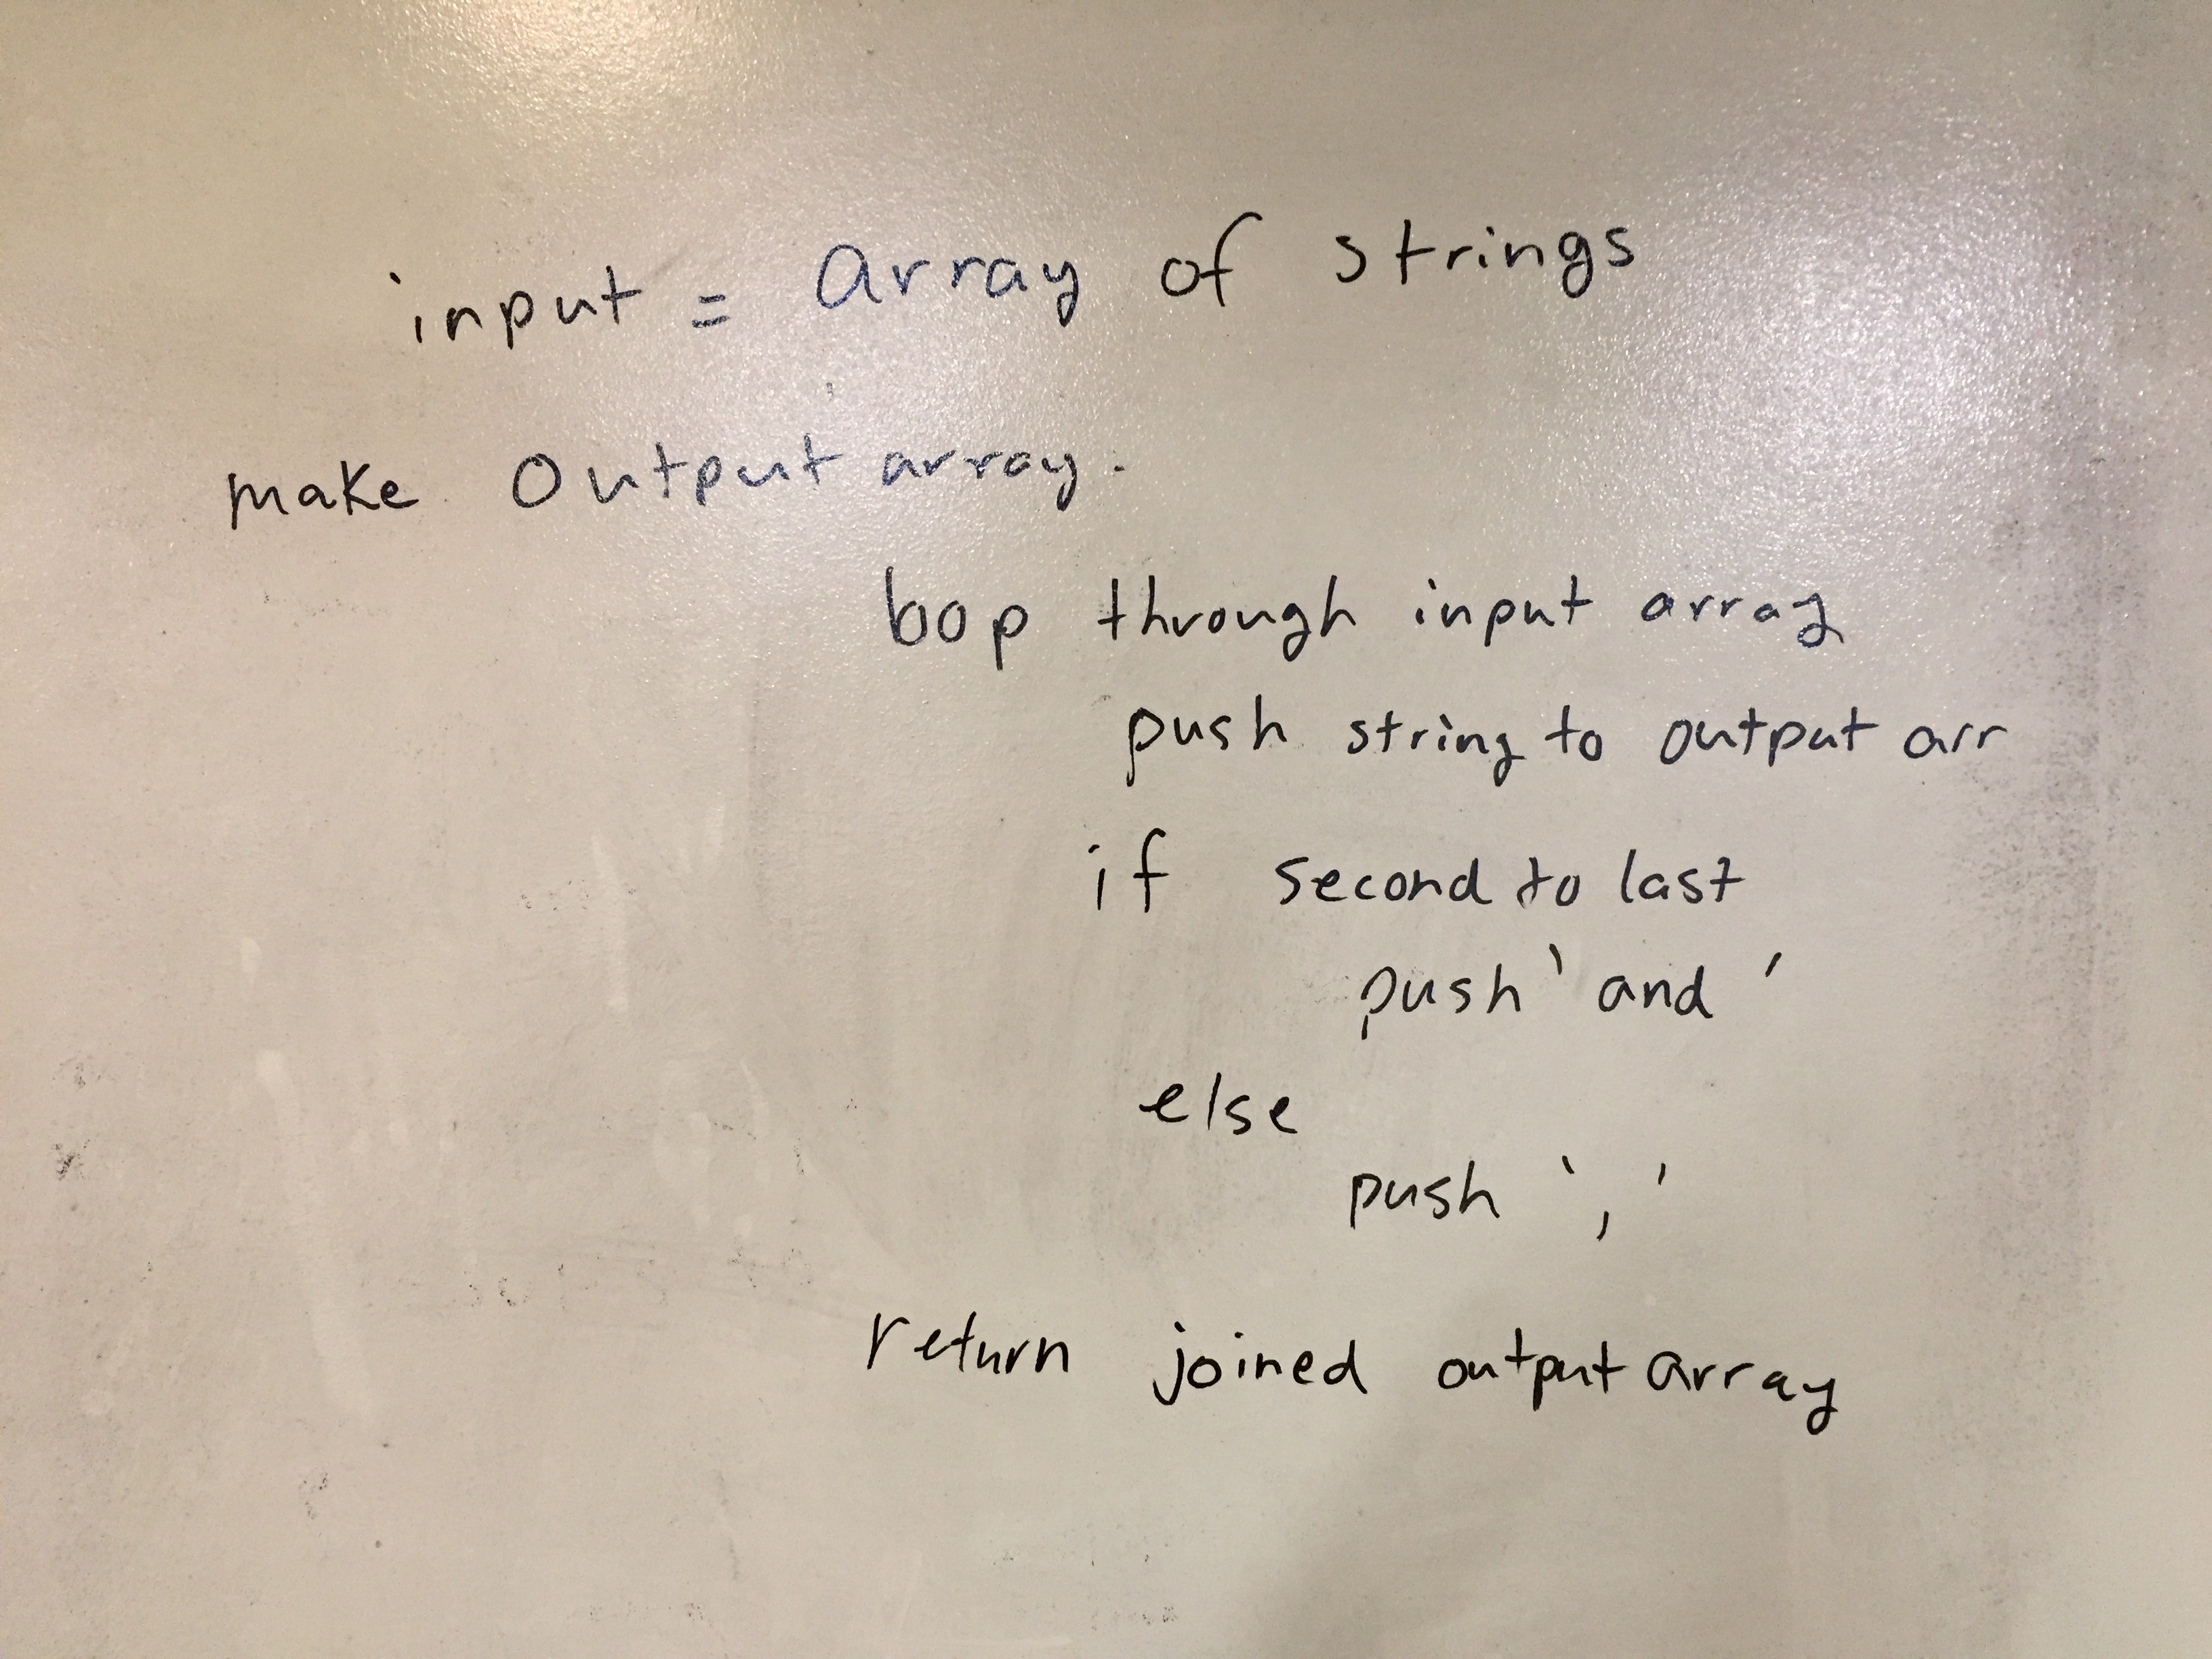 input = array of strings
make output array.
bop through input array
push string to output arr
if second to last
push ' and '
else
push ', '
return joined output array